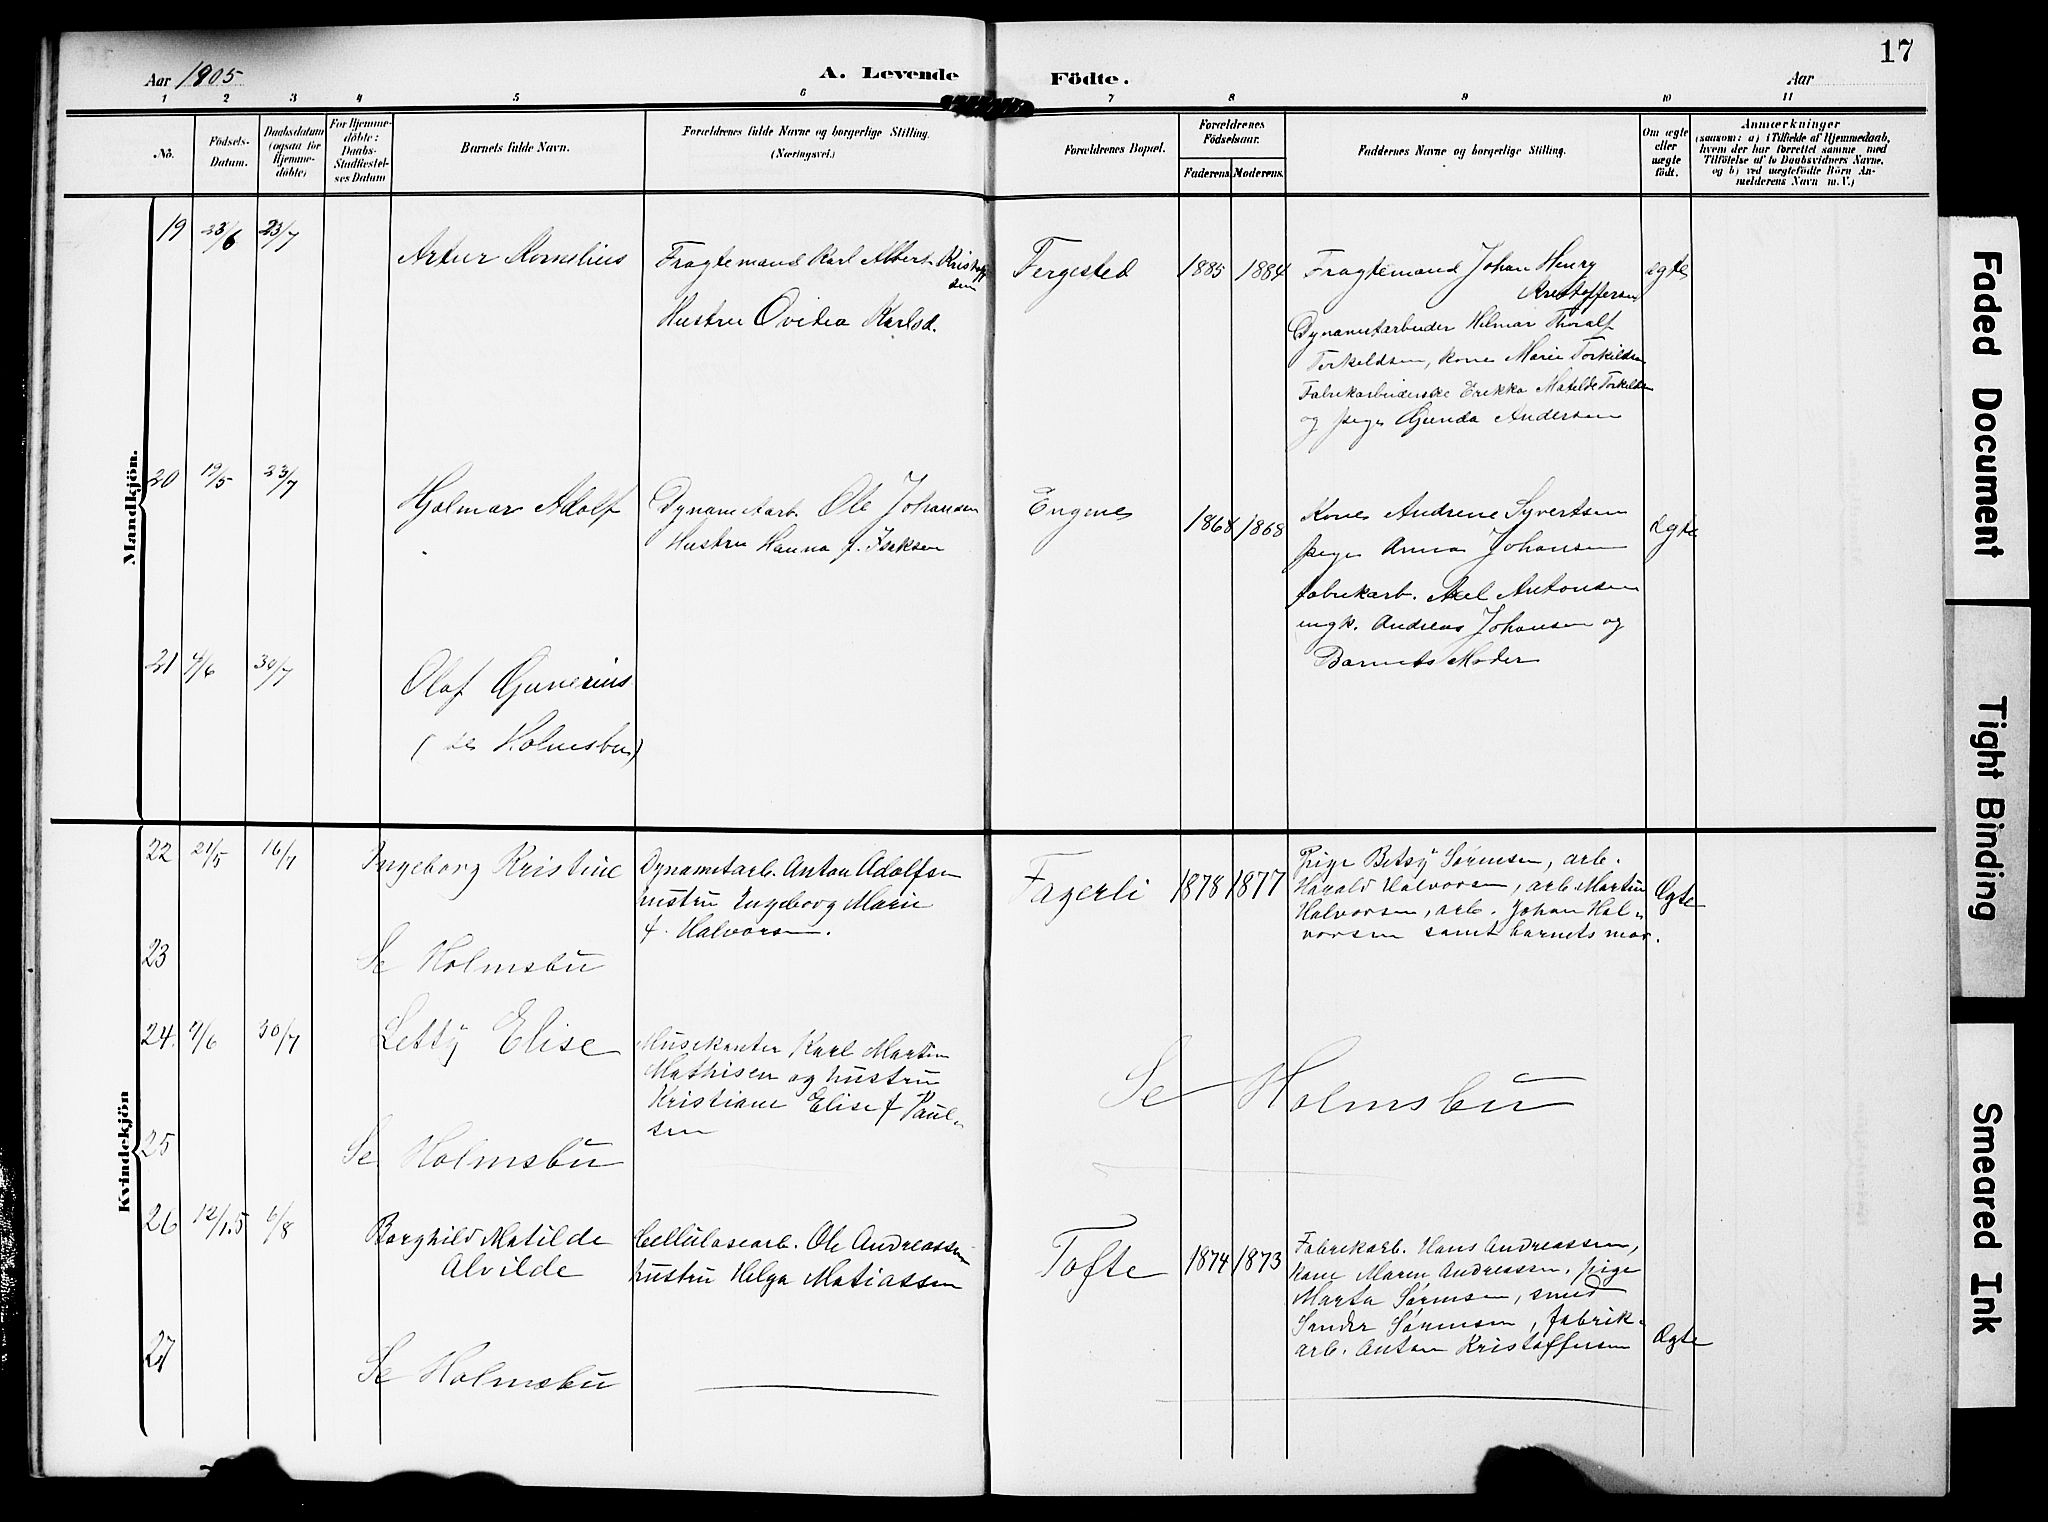 Aar 1905
A. Levende
Födte.
Aar
17
1 2 3 4 5 6 7 8 9 10 11
No.
Födsels-
Datum.
Daabsdatum
(ogsaa for
Hjemme-
döbte)
For Hjemme-
döbte:
Daabs-
Stadfæstel-
ses Datum
Barnets fulde Navn.
Forældrenes fulde Navne og borgerlige Stilling.
(Næringsvei.)
Forældrenes Bopæl.
Forældrenes
Födselsaar.
Faderens. Moderens.
Faddernes Navne og borgerlige Stilling.
Om ægte
eller
uægte
födt.
Anmærkninger
(saasom: a) i Tilfælde af Hjemmedaab,
hvem der har forrettet samme, med
Tilföielse af to Daabsvidners Navne,
og b) ved uægtefödte Börn An-
melderens Navn m. V.)
Mandkjön.
19 23/6 23/7
Artur Kornelius
Fragtemand Karl Albert Kristoff
sen
Hustru Ovidia Karlsd.
Fergested
1885 1884
Fragtemand Johan Henry
Kristoffersen
Dynamitarbeider Hilmar Thoralf
Torkeldsen, kone Marie Torkildsen
Fabrikarbeiderske Erikka Matilde Torkildsen
og pige Gunda Andersen
ægte
20 19/5 23/7
Hjalmar Adolf
Dynamitarb. Ole Johansen
Hustru Hanna f. Isaksen
Engene
1868 1868
Kone Andrene Syvertsen
pige Anna Johansen
fabrikarb. Axel Antonsen
ungk. Andreas Johansen og
Barnets Moder
ægte
21 4/6 30/7
Olaf Gunerius
(se Holmsbu)
Kvindekjön
22 21/5 16/7
Ingeborg Kristine
Dynamitarb. Anton Adolfsen
hustru Ingeborg Marie
f. Halvorsen.
Fagerli
1878 1877
Pige Betsy Sørensen, arb.
Harald Halvorsen, arb. Martin
Halvorsen, arb. Johan Hal-
vorsen samt barnets mor.
Ægte
23
Se Holmsbu
24. 7/6 30/7
Letty Elise
Musikanter Karl Martin
Mathisen og hustru
Kristiane Elise f Paul-
sen
Se Holmsbu
25
Se Holmsbu
26 12/1.5 6/8
Borghild Matilde
Alvilde
Cellulosearb. Ole Andreassen
hustru Helga Matiassen
Tofte
1874 1873
Fabrikarb. Hans Andreassen,
kone Maren Andreassen, pige
Marta Sørensen, smed
Sander Sørensen, fabrik-
arb. Anton Kristoffersen
Ægte
27
Se Holmsbu
Faded Document
Tight Binding
Smeared Ink